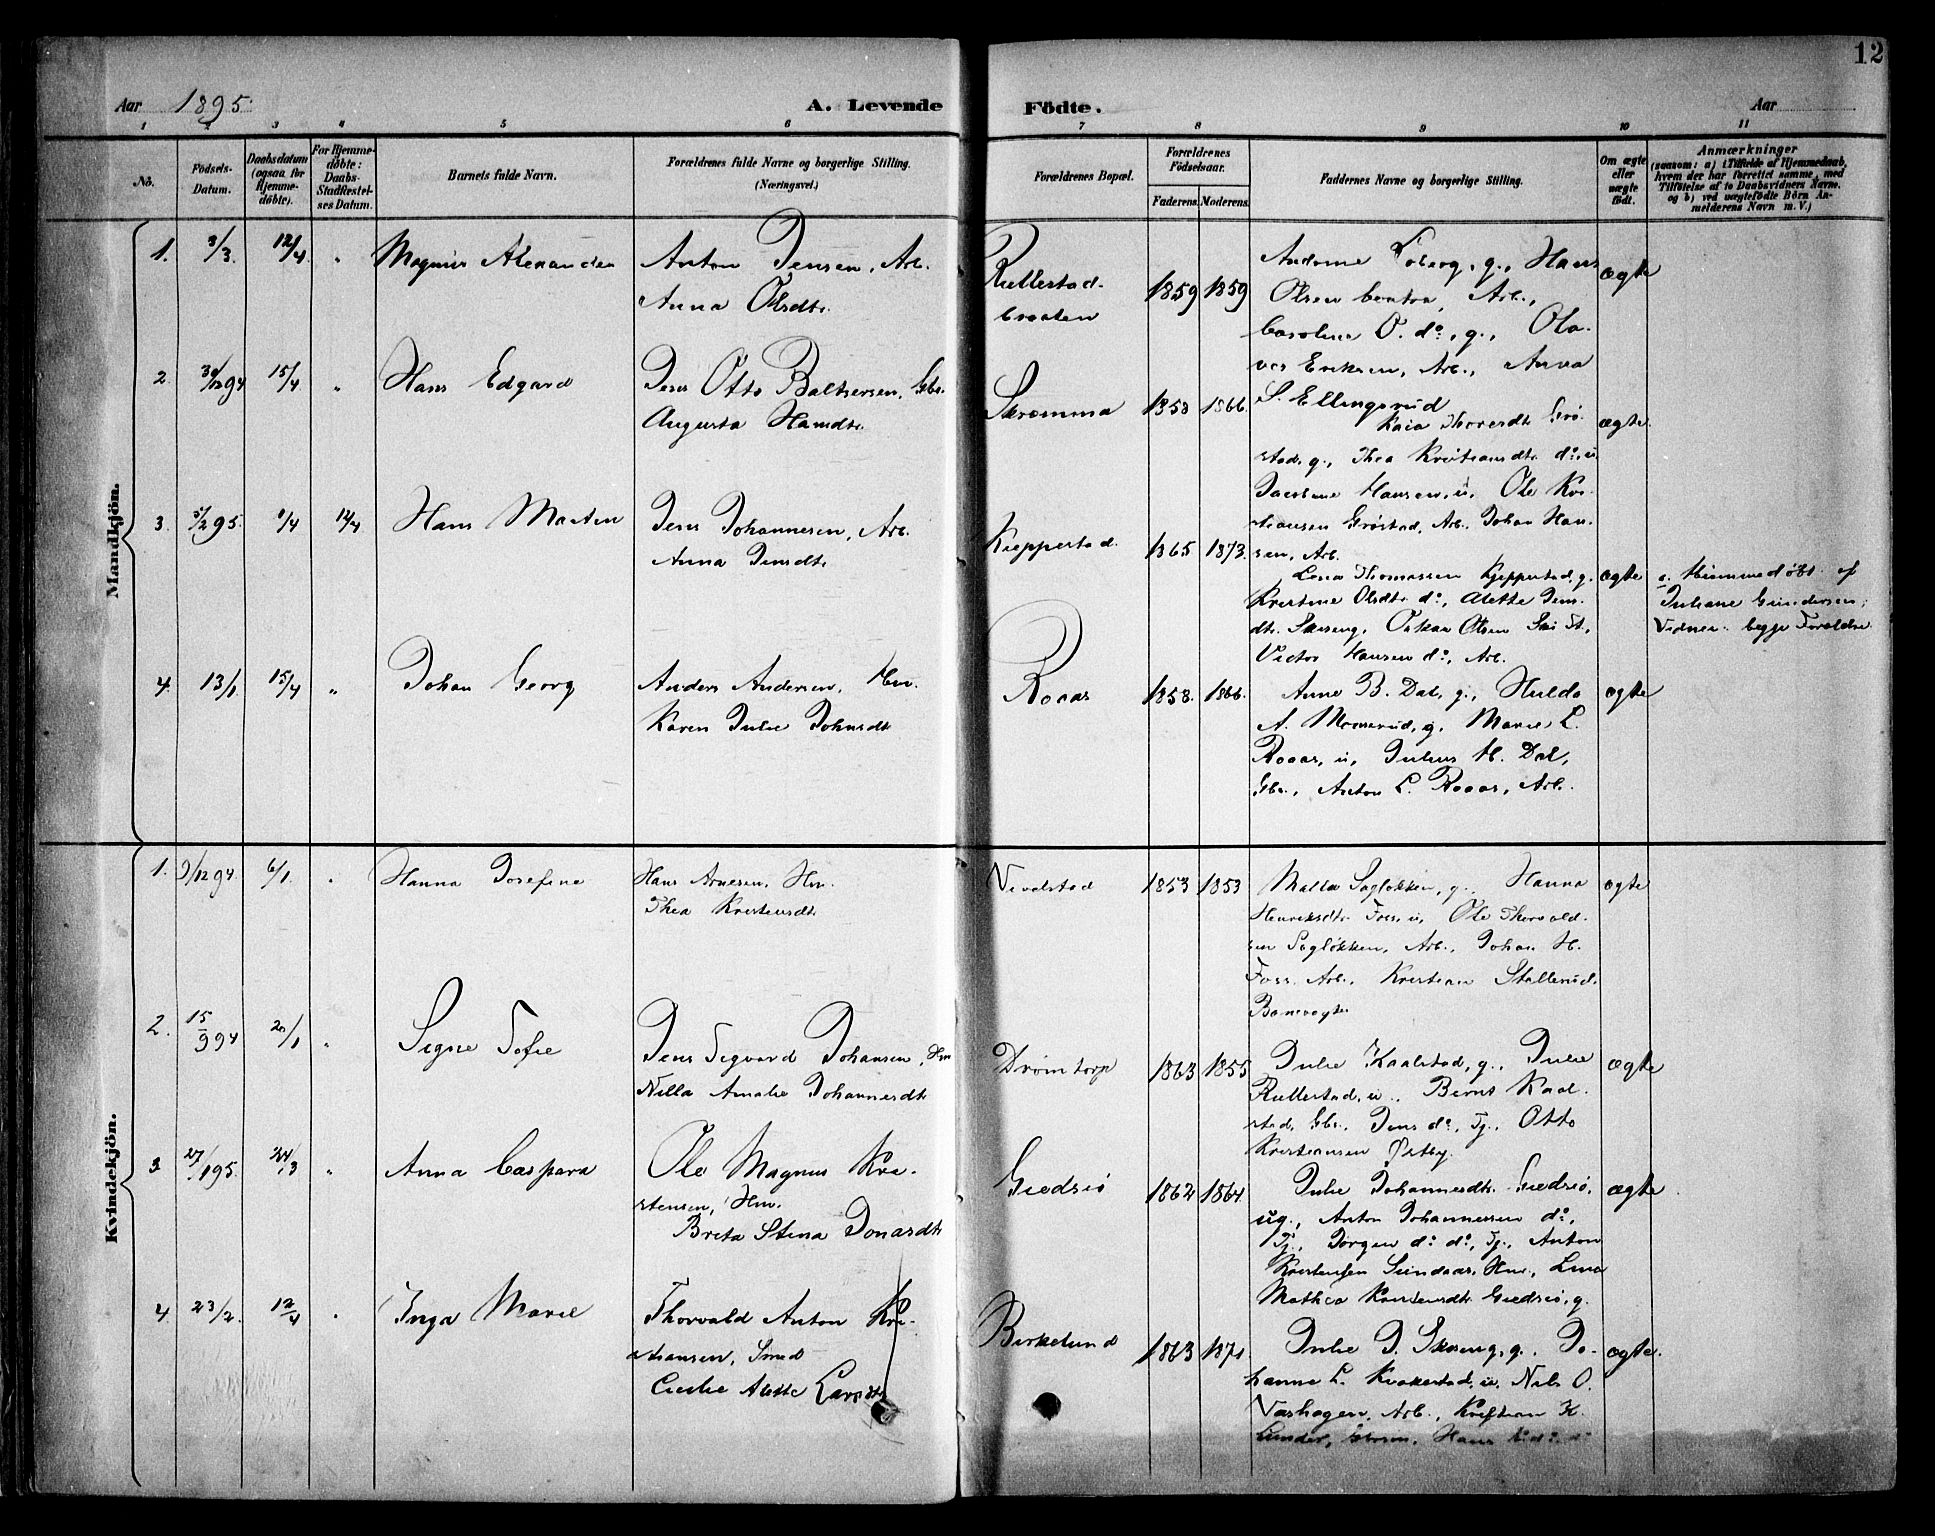 12
Aar 1895.
A. Levende Födte.
Aar
1 2 3 4 5 6 7 8 9 10 11
No.
Födsels-Datum.
Daabsdatum (ogsaa for Hjemmedöbte).
For Hjemmedöbte: Daabs-Stadfæstelses Datum.
Barnets fulde Navn.
Forældrenes fulde Navne og borgerlige Stilling.
(Næringsvei.)
Forældrenes Bopæl.
Forældrenes Födselsaar.
Faderens. Moderens.
Faddernes Navne og borgerlige Stilling.
Om ægte eller uægte födt.
Anmærkninger
(saasom: a) i Tilfælde af Hjemmedaab,
hvem der har forrettet samme, med
Tilföielse af to Daabsvidners Navne.
og b) ved uægtefödte Börn An-
melderens Navn m. V.)
Mandkjön.
1. 3/3. 12/4 " Magnus Alexander
Anton Jensen, Arb.
Anna Olsdtr.
Rullestad-
braaten
1859 1859
Olsen Arb.,
Caroline O. do, g., Ola-
ves Eriksen, Arb., Anna
S. Ellingsrud
ægte
2. 30/12 94 15/4 " Hans Edgard
Jens Otto Baltsersen, Gbr.
Augusta Hansdtr.
Skromma
1858 1866.
Kaia Thorersdtr. Grø-
stad, g., Thea Kristiansdtr. do, u.
Jacobine Hansen, u., Ole Kri-
stiansen Grøstad, Arb., Johan Han-
sen, Arb.
ægte.
3. 5/2 95. 1/4 12/4 Hans Martin
Jens Johannesen, Arb.
Anna Jensdtr.
Kjeppestad.
1865 1873.
Lena Thomassen Kjeppestad, g.
Kristine Olsdtr. do, Alette Jens-
dtr. Skoseng, Oskar Olsen Ski St.,
Victor Hansen do, Arb.
ægte
a. Hjemmedøbt af
Juliane Gundersen;
Vidner: begge Forældre
4. 13/1. 15/4 " Johan Georg
Anders Andersen, Hm.
Karen Julie Johnsdtr.
Roaas
1858. 1866.
Anne B. Dal, g., Hulda
A. Moenrud, g., Marie L.
Roaas, u., Julius H. Dal,
Gbr., Anton L. Roaas, Arb.
ægte
Kvindekjön.
1. 9/12 94. 6/1. " Hanna Josefine
Hans Arnesen, Hm.
Thea Kristensdtr.
Nevelstad
1853 1853
Malla Sagløkken, g., Hanna
Henriksdtr. Foss, u., Ole Thorvald-
sen Sagløkken, Arb., Johan H.
Foss, Arb., Kristian Stallerud,
Banevogter
ægte
2. 15/9 94 20/1 " Signe Sofie
Jens Sigvard Johansen, Hm
Nilla Amalie Johannesdtr.
Drømtorp
1863 1855
Julie Kaalstad, g., Julie
Rullestad, u., Bernt Kaal-
stad, Gbr., Jens do, Tj., Otto
Kristiansen Østby.
ægte
3 27/1 95. 24/3 " Anna Caspara
Ole Magnus Kri-
stensen, Hm.
Brita Stina Jonasdtr.
Gjedsjø
1862 1864.
Julie Johannesdtr. Gjedsjø,
ug., Anton Johannessen do,
Tj., Jørgen do do, Tj., Anton
Kristensen Sundaas, Hm., Lina
Mathea Kristensdtr. Gjedsjø, g.
ægte
4. 23/2. 12/4 " Inga Marie
Thorvald Anton Kri-
stiansen, Smed
Cecilie Alette Larsdtr.
Birkelund
1863 1871.
Julie J. Skoseng, g., Jo-
hanne L. Kvakestad, u., Nils O.
Vashagen, Arb., Kristian K.
Lunder, Hans
ægte.